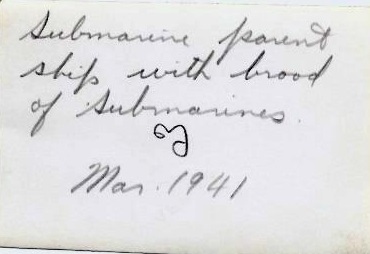 Submarine parent
ship with brood
of submarines.
Mar. 1941